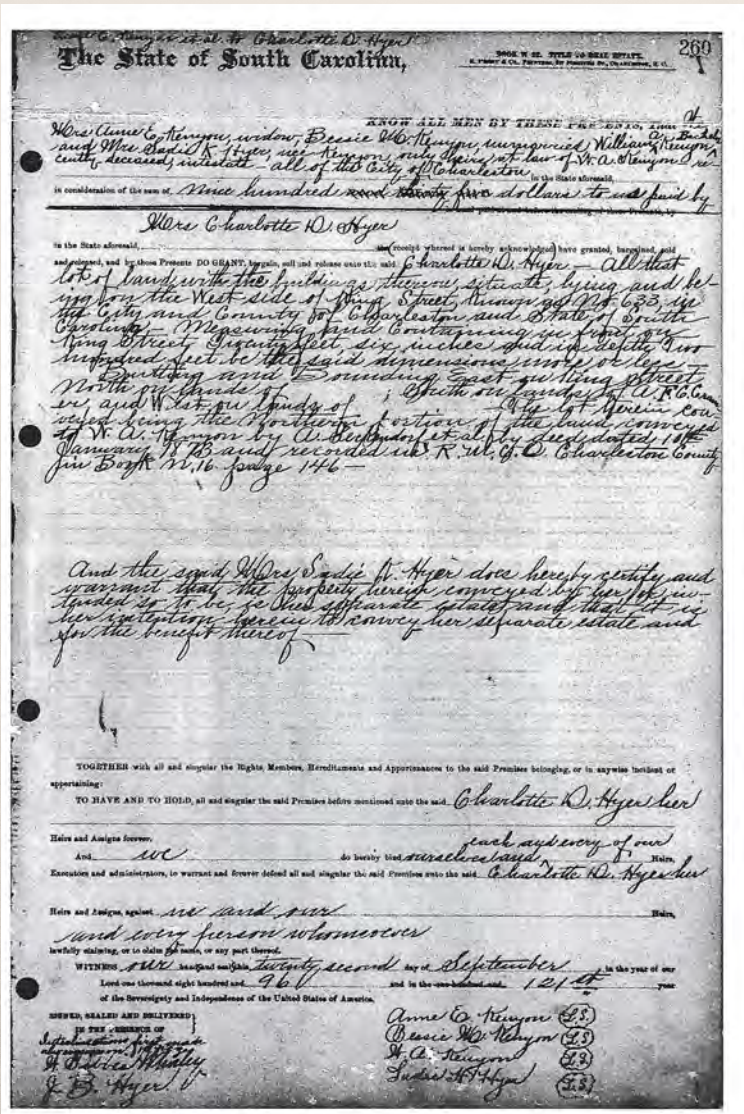 Anne E. Kenyon et al. to Charlotte D. Hyer
The State of South Carolina,
260
KNOW ALL MEN BY THESE PRESENTS, That we
Mrs Anne E. Kenyon, widow, Bessie M. Kenyon, unmarried, William A. Kenyon, Bachelor
and Mrs Sadie K Hyer, nee Kenyon, only heirs at law of W. A. Kenyon re-
cently deceased, intestate all of the City of Charleston in the State aforesaid,
in consideration of the sum of nine hundred and thirty five dollars to us paid by
Mrs Charlotte D. Hyer
in the State aforesaid, the receipt whereof is hereby acknowledged have granted, bargained, sold
and released, and by these Presents DO GRANT, bargain, sell and release unto the said Charlotte D. Hyer – All that
lot of land with the buildings thereon, situate, lying and be-
ing on the West side of King Street, Known as No 633, in
the City and County of Charleston and State of South
Carolina – Measuring and Containing in front on
King Street Twenty feet six inches and in depth Two
hundred feet be the said dimensions more or less –
Butting and Bounding East on King Street
North on lands of ; South on lands of A. F. C.
er, and West on lands of The lot herein con-
veyed being the Northern portion of the land conveyed
to W. A. Kenyon by A. et al by deed dated 10th
January 1873 and recorded in R. M. C. O. Charleston County
in Book N. 16 page 146 –
And the said Mrs Sadie K. Hyer does hereby certify and
warrant that the property herein conveyed by her, or in-
tended so to be, is her separate estate, and that it is
her intention herein to convey her separate estate and
for the benefit thereof –
TOGETHER with all and singular the Rights, Members, Hereditaments and Appurtenances to the said Premises belonging, or in anywise incident or
appertaining:
TO HAVE AND TO HOLD, all and singular the said Premises before mentioned unto the said Charlotte D. Hyer her
Heirs and Assigns forever.
each and every of our
And we do hereby bind ourselves and Heirs,
Executors and administrators, to warrant and forever defend all and singular the said Premises unto the said Charlotte D. Hyer her
Heirs and Assigns, against us and our Heirs,
and every person whomsoever
lawfully claiming, or to claim the same, or any part thereof.
WITNESS our hands and seals, this twenty second day of September in the year of our
Lord one thousand eight hundred and 96 and in the one hundred and 121st year
of the Sovereignty and Independence of the United States of America.
SIGNED, SEALED AND DELIVERED
IN THE PRESENCE OF
Interlineations first made
J. B. Hyer
Anne E. Kenyon (L.S.)
Bessie M. Kenyon (L.S)
W. A. Kenyon (L.S)
Sadie K Hyer (L.S.)